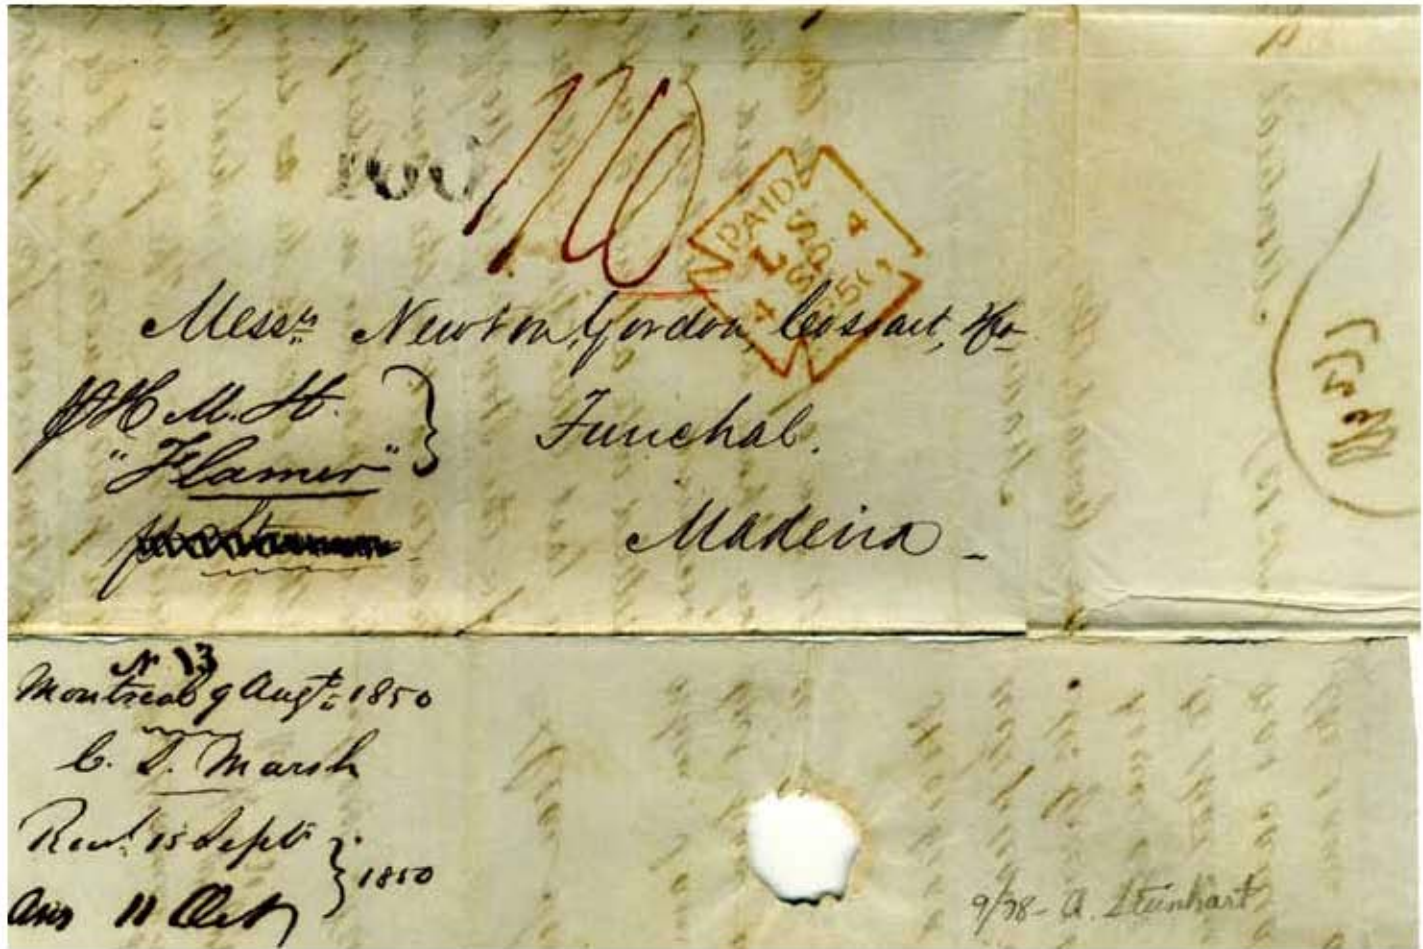 160
1/10
PAID
L S
4 SP 4
1850
Messrs Newton, Gordon, Cossart, &Co
p H M. St.
"Flamer"
Funchal.
Madeira
N 13
Montreal 9 Augt 1850
C. D. Marsh
Recd 15 Sept
Ans 11 Oct
1850
9/78 - A. Steinhart